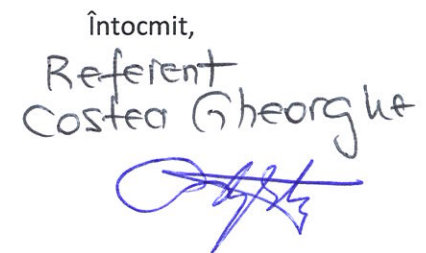 Întocmit,
Referent
Costea Gheorghe